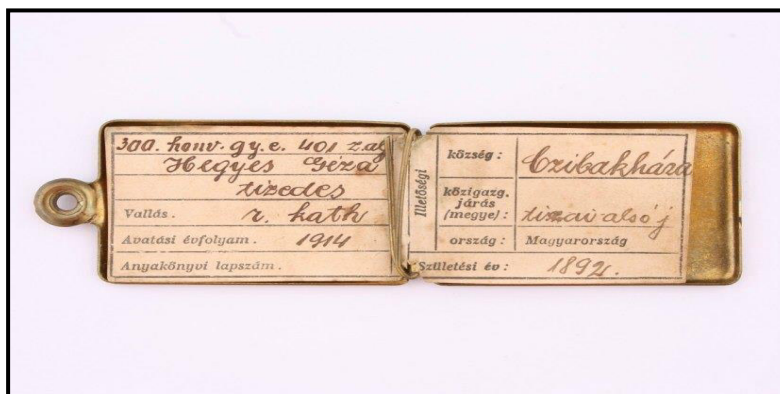 300. honv. gy. e. 401 zalj
Hegyes Géza
tizedes
Vallás. r. kath
Avatási évfolyam. 1914
Anyakönyvi lapszám.
Illetőségi
község: Czibakháza
közigazg. járás (megye): tiszai alsó j
ország: Magyarország
Születési év: 1892.